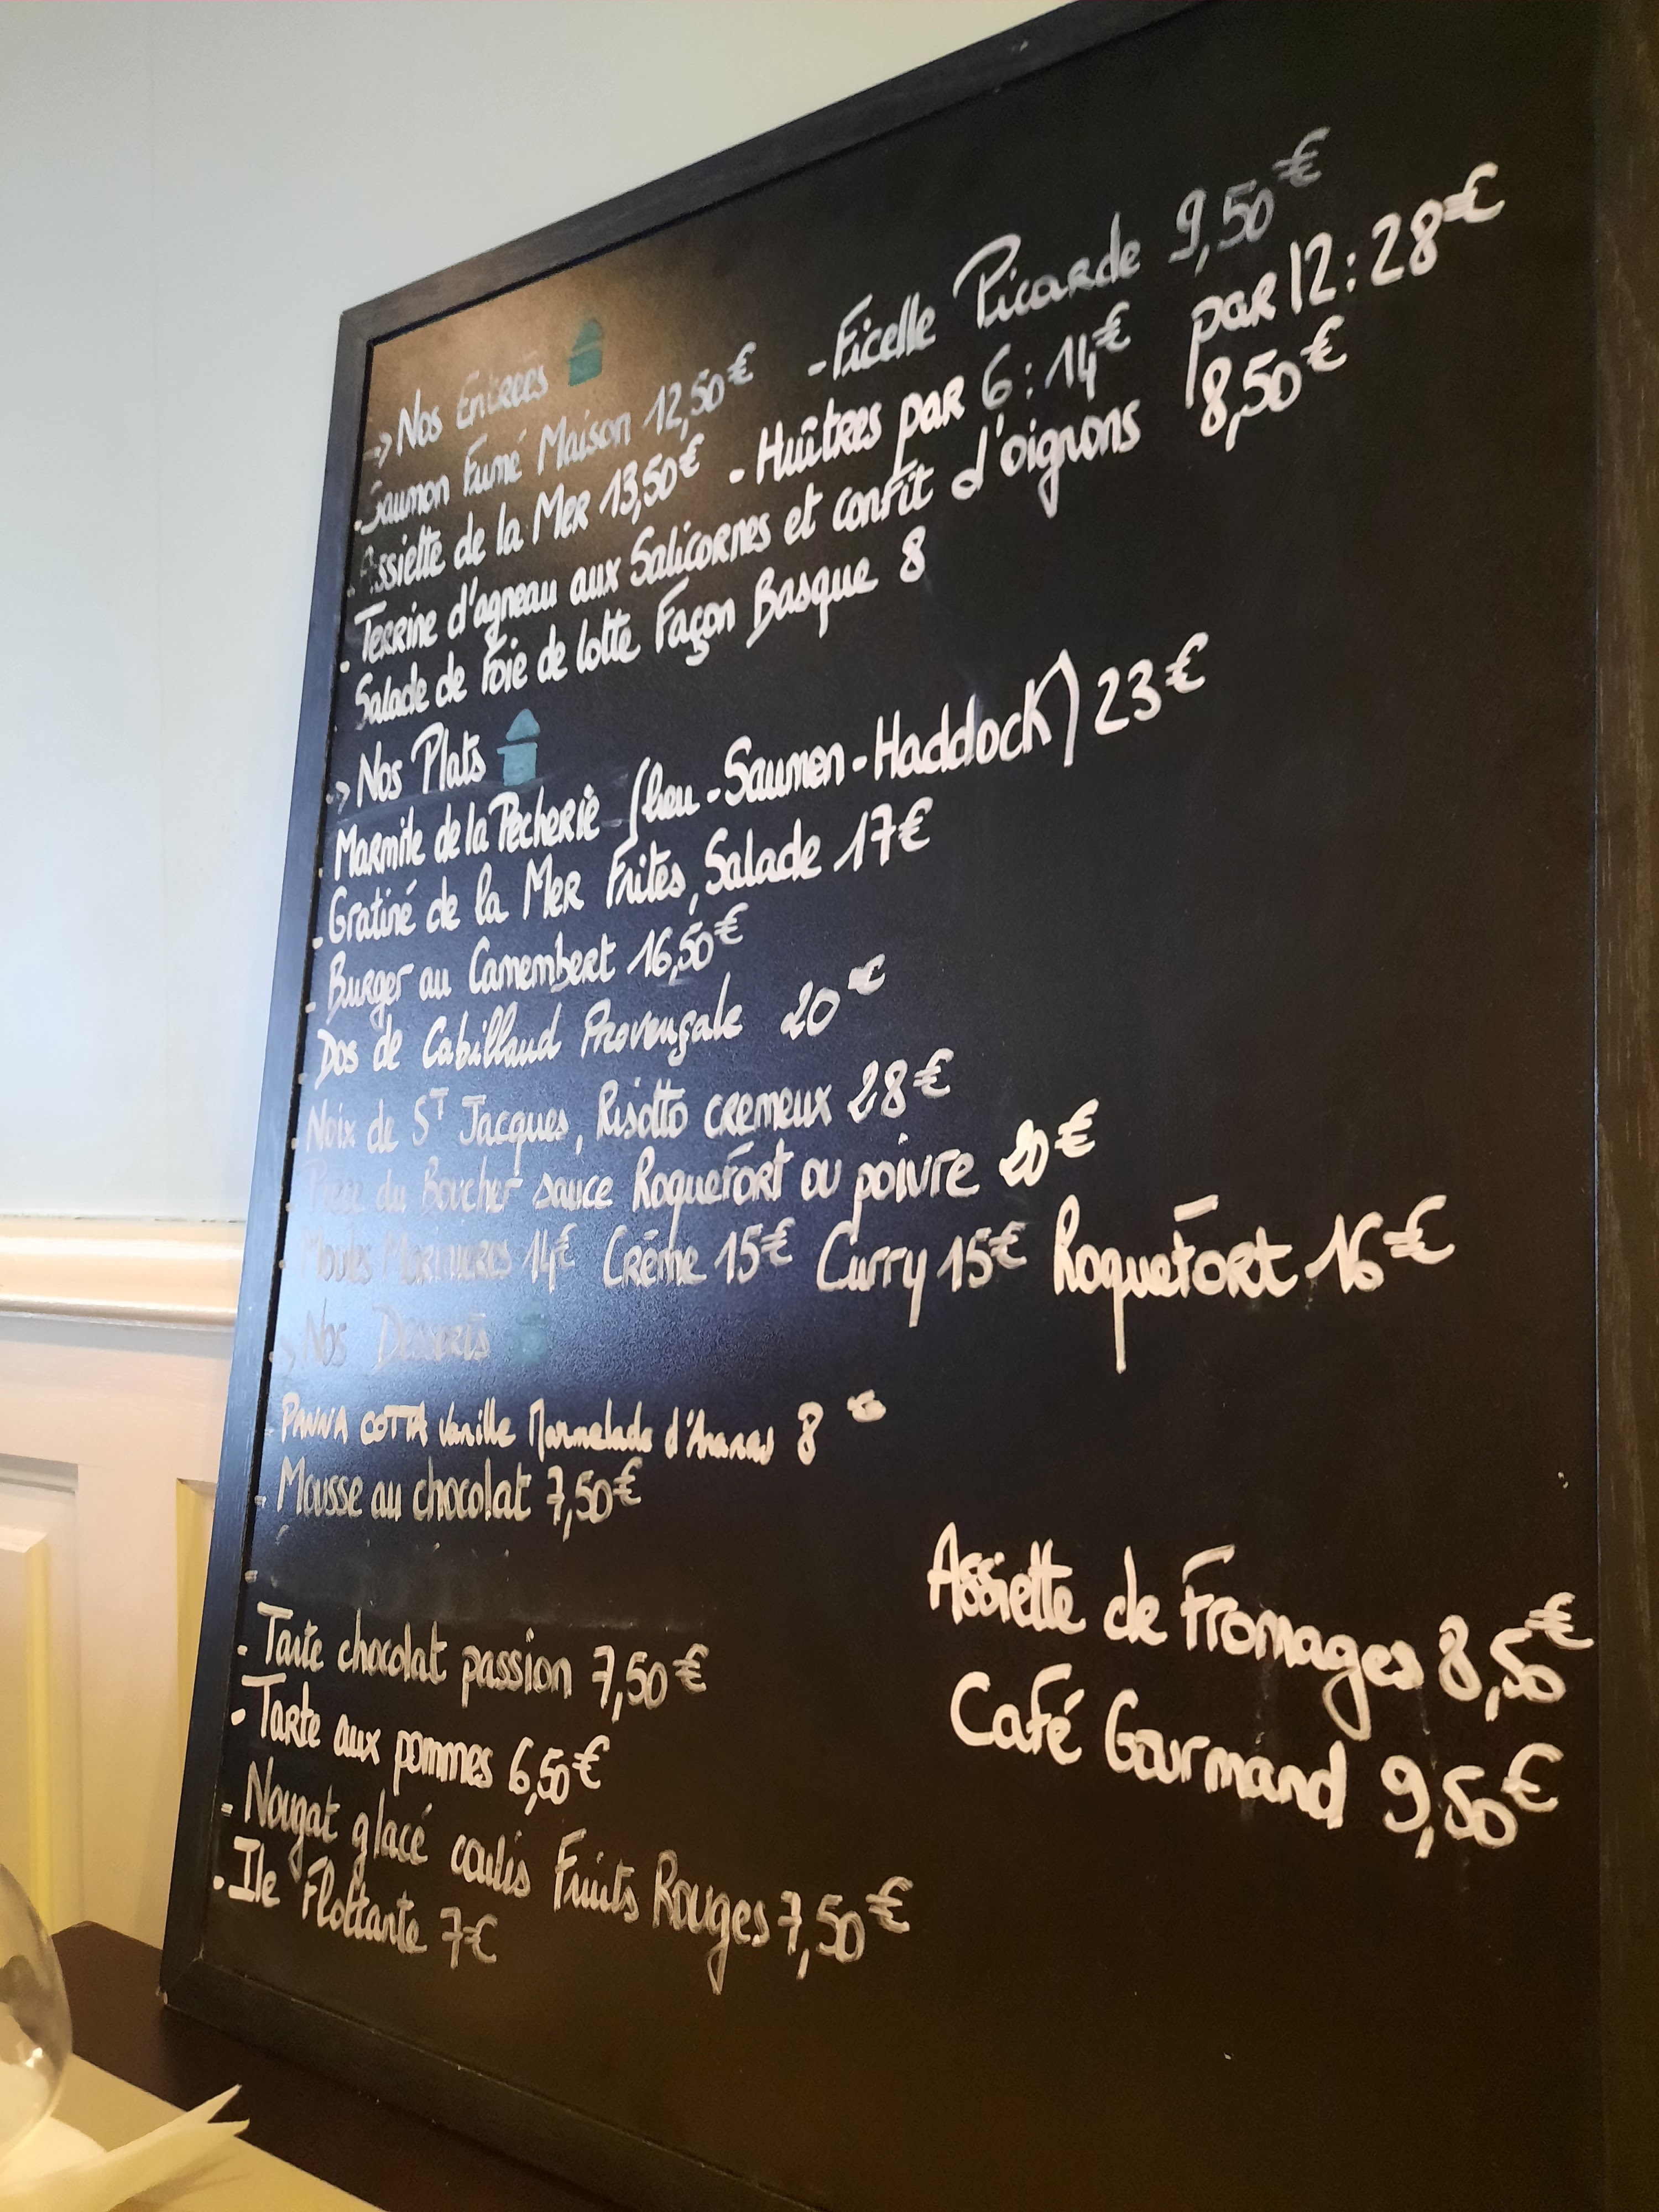 -> Nos Entrées
- Saumon Fumé Maison 12,50€ - Ficelle Picarde 9,50€
- Assiette de la Mer 13,50€ - Huîtres par 6 : 14€ par 12 : 28€
- Terrine d'agneau aux Salicornes et confit d'oignons 8,50€
Salade de Foie de lotte Façon Basque 8
-> Nos Plats
- Marmite de la Pêcherie (lieu - Saumon - Haddock) 23€
- Gratiné de la Mer Frites, Salade 17€
- Burger au Camembert 16,50€
- Dos de Cabillaud Provençale 20€
- Noix de ST Jacques, Risotto crémeux 28€
- Pièce du Boucher sauce Roquefort ou poivre 20€
- Moules Marinières 14€ Crème 15€ Curry 15€ Roquefort 16€
-> Nos Desserts
- PANNA COTTA Vanille Marmelade d'Ananas 8€
- Mousse au chocolat 7,50€
-
- Tarte chocolat passion 7,50€
- Tarte aux pommes 6,50€
- Nougat glacé coulis Fruits Rouges 7,50€
- Ile Flottante 7€
Assiette de Fromages 8,50€
Café Gourmand 9,50€